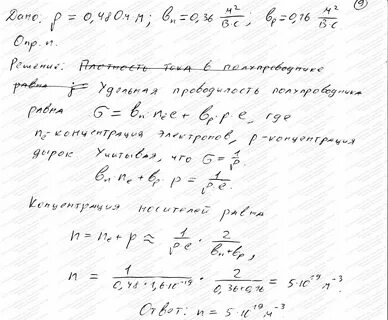 9
Дано. ρ = 0,48 Ом·м; bₙ = 0,36 м²/В·с; bₚ = 0,16 м²/В·с
Опр. n.
Решение: Плотность тока в полупроводнике
равна j= Удельная проводимость полупроводника
равна G = bₙ nₑ e + bₚ · p · e, где
nₑ - концентрация электронов, p - концентрация
дырок Учитывая, что G = 1/ρ.
bₙ nₑ + bₚ · p = 1/ρe.
Концентрация носителей равна
n = nₑ + p ≈ 1/ρe · 2/bₙ+bₚ,
n = 1/0,48·1,6·10⁻¹⁹ · 2/0,36+0,16 = 5·10¹⁹ м⁻³.
Ответ: n = 5·10¹⁹ м⁻³